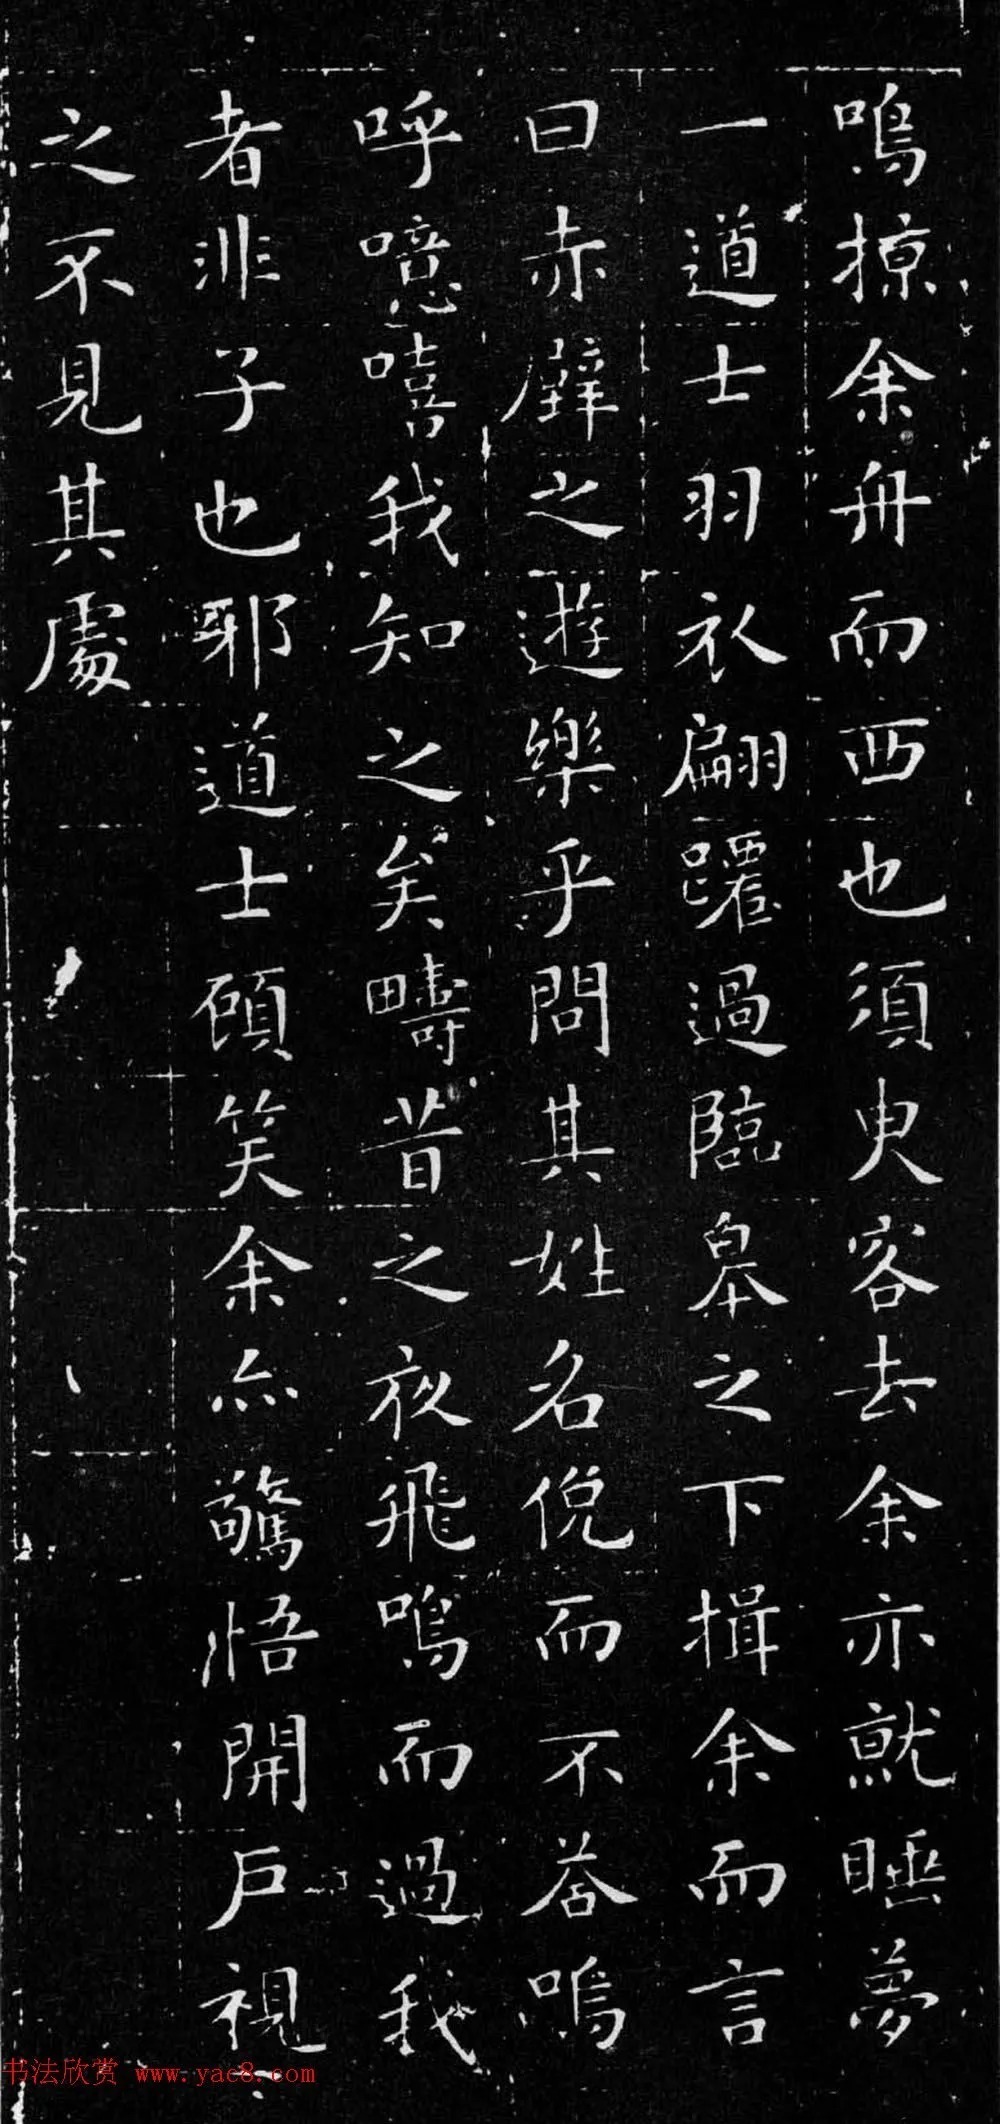 鳴掠余舟而西也須臾客去余亦就睡夢
一道士羽衣翩躚過臨皋之下揖余而言
曰赤壁之遊樂乎問其姓名俛而不荅嗚
呼噫嘻我知之矣疇昔之夜飛鳴而過我
者非子也邪道士顧笑余亦驚悟開戶視
之不見其處
书法欣赏 www.yac8.com